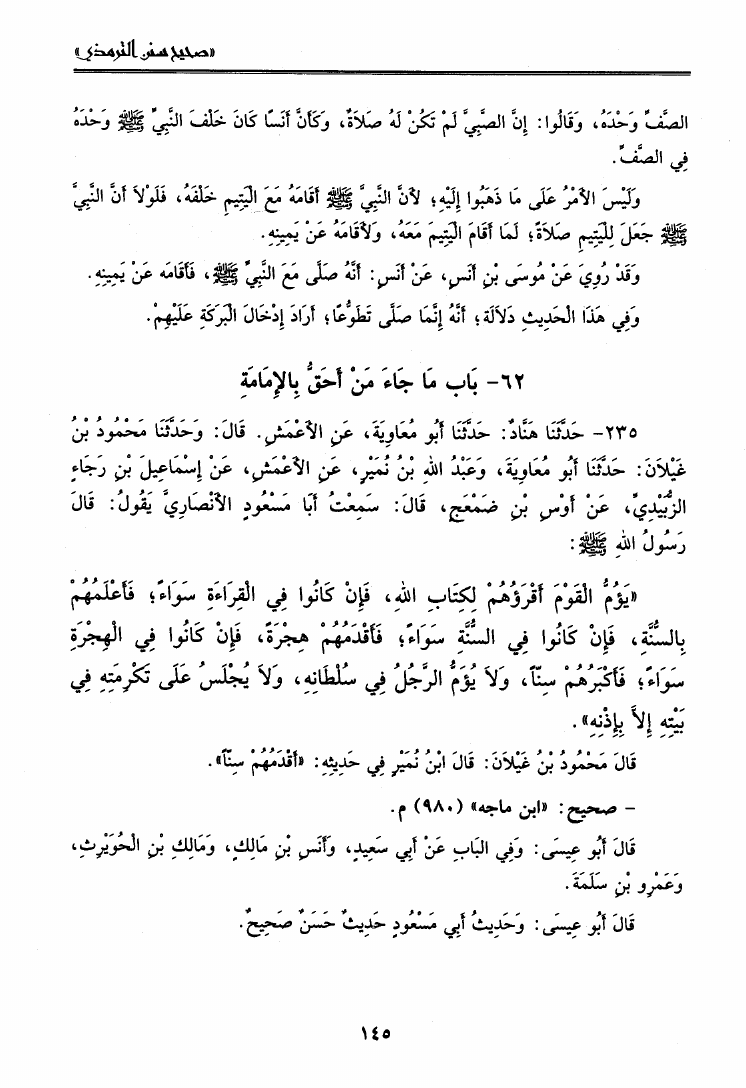 «صحيح سنن الترمذي»
الصَّفِّ وَحْدَهُ، وَقَالُوا: إِنَّ الصَّبِيَّ لَمْ تَكُنْ لَهُ صَلَاةٌ، وَكَأَنَّ أَنَسًا كَانَ خَلْفَ النَّبِيِّ ﷺ وَحْدَهُ
فِي الصَّفِّ.
وَلَيْسَ الأَمْرُ عَلَى مَا ذَهَبُوا إِلَيْهِ؛ لأَنَّ النَّبِيَّ ﷺ أَقَامَهُ مَعَ الْيَتِيمِ خَلْفَهُ، فَلَوْلاَ أَنَّ النَّبِيَّ
ﷺ جَعَلَ لِلْيَتِيمِ صَلاَةً؛ لَمَا أَقَامَ الْيَتِيمَ مَعَهُ، وَلأَقَامَهُ عَنْ يَمِينِهِ.
وَقَدْ رُوِيَ عَنْ مُوسَى بْنِ أَنَسٍ، عَنْ أَنَسٍ: أَنَّهُ صَلَّى مَعَ النَّبِيِّ ﷺ، فَأَقَامَه عَنْ يَمِينِهِ.
وَفِي هَذَا الْحَدِيثِ دَلاَلَة؛ أَنَّهُ إِنَّمَا صَلَّى تَطَوُّعًا؛ أَرَادَ إِدْخَالَ الْبَرَكَةِ عَلَيْهِمْ.
٦٢- بَاب مَا جَاءَ مَنْ أَحَقُّ بِالإِمَامَةِ
٢٣٥- حَدَّثَنَا هَنَّادٌ: حَدَّثَنَا أَبُو مُعَاوِيَةَ، عَنِ الأَعْمَشِ. قَالَ: وَحَدَّثَنَا مَحْمُودُ بْنُ
غَيْلاَنَ: حَدَّثَنَا أَبُو مُعَاوِيَةَ، وَعَبْدُ اللهِ بْنُ نُمَيْرٍ، عَنِ الأَعْمَشِ، عَنْ إِسْمَاعِيلَ بْنِ رَجَاءٍ
الزُّبَيْدِيِّ، عَنْ أَوْسِ بْنِ ضَمْعَجٍ، قَالَ: سَمِعْتُ أَبَا مَسْعُودٍ الأَنْصَارِيَّ يَقُولُ: قَالَ
رَسُولُ اللهِ ﷺ:
«يَؤُمُّ الْقَوْمَ أَقْرَؤُهُمْ لِكِتَابِ اللهِ، فَإِنْ كَانُوا فِي الْقِرَاءَةِ سَوَاءً؛ فَأَعْلَمُهُمْ
بِالسُّنَّةِ، فَإِنْ كَانُوا فِي السُّنَّةِ سَوَاءً؛ فَأَقْدَمُهُمْ هِجْرَةً، فَإِنْ كَانُوا فِي الْهِجْرَةِ
سَوَاءً؛ فَأَكْبَرُهُمْ سِنّاً، وَلاَ يُؤَمُّ الرَّجُلُ فِي سُلْطَانِهِ، وَلاَ يُجْلَسُ عَلَى تَكْرِمَتِهِ فِي
بَيْتِهِ إِلاَّ بِإِذْنِهِ».
قَالَ مَحْمُودُ بْنُ غَيْلاَنَ: قَالَ ابْنُ نُمَيْرٍ فِي حَدِيثِهِ: «أَقْدَمُهُمْ سِنّاً».
- صحيح: «ابن ماجه» (٩٨٠) م.
قَالَ أَبُو عِيسَى: وَفِي الْبَابِ عَنْ أَبِي سَعِيدٍ، وَأَنَسِ بْنِ مَالِكٍ، وَمَالِكِ بْنِ الْحُوَيْرِثِ،
وَعَمْرِو بْنِ سَلَمَةَ.
قَالَ أَبُو عِيسَى: وَحَدِيثُ أَبِي مَسْعُودٍ حَدِيثٌ حَسَنٌ صَحِيحٌ.
١٤٥